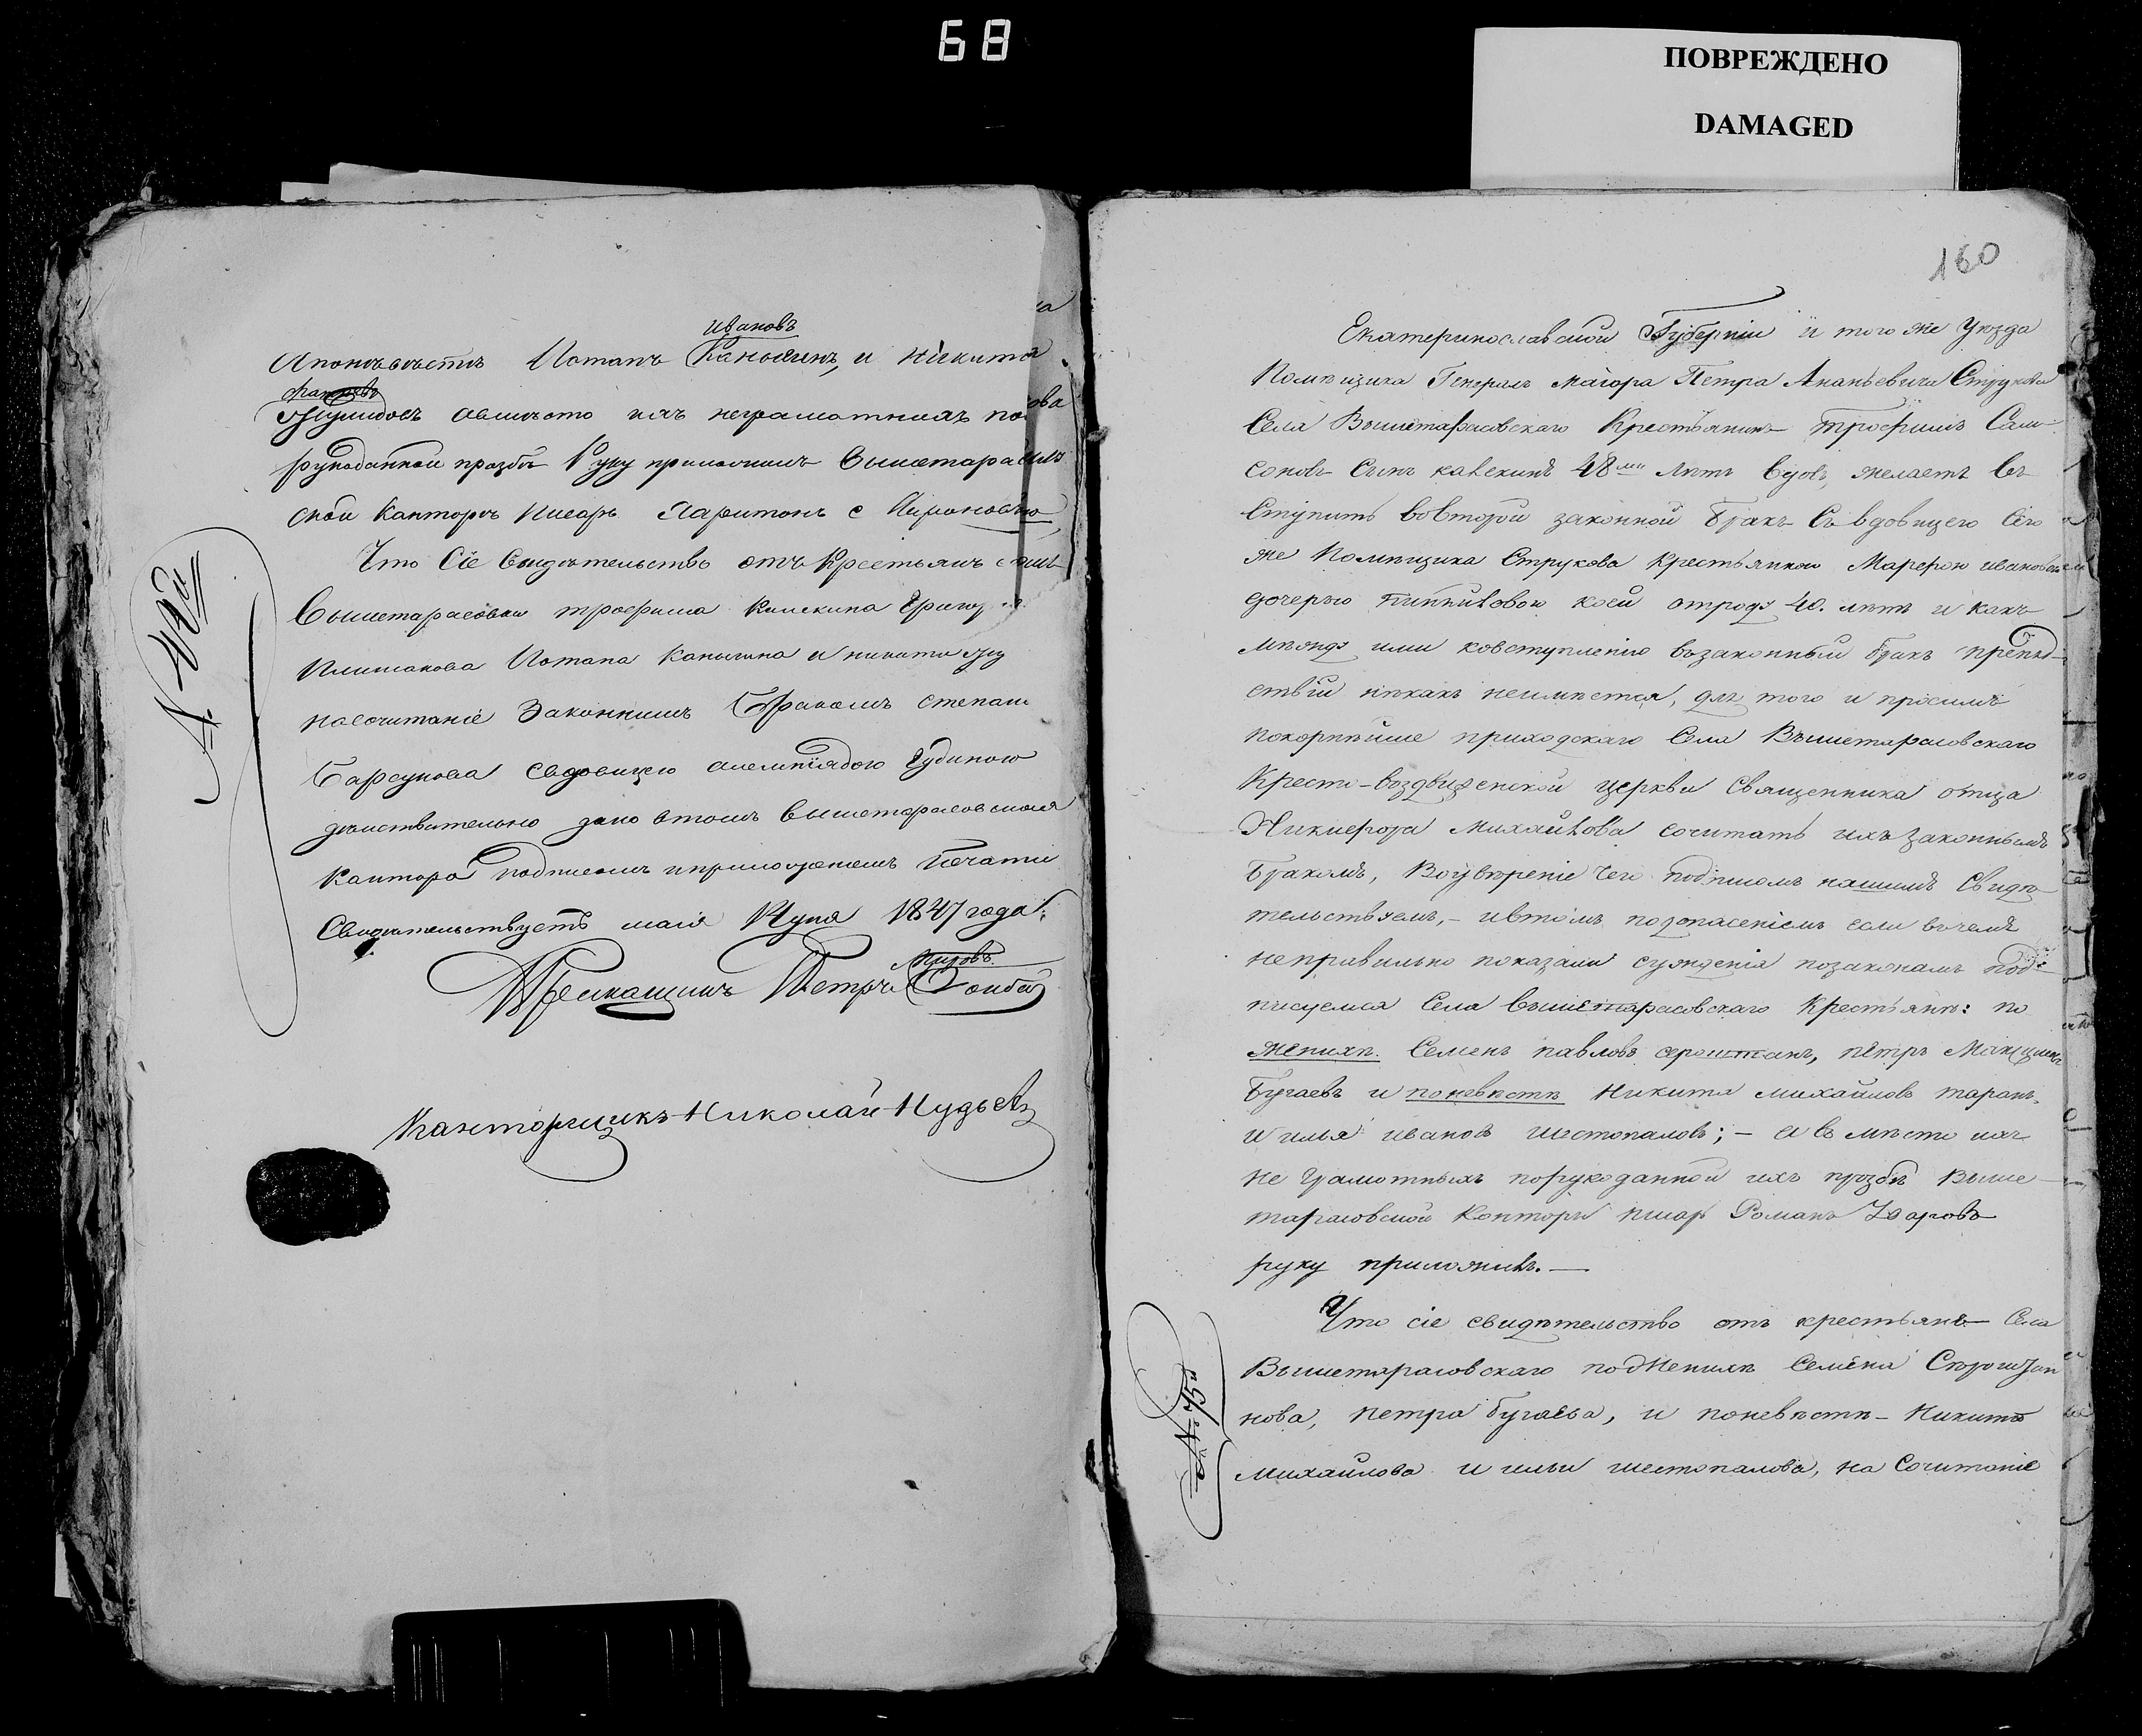 68
ПОВРЕЖДЕНО
DAMAGED
ивановъ
Апоневѣстѣ Потапъ Каныгинъ, и никита
авмѣсто ихъ неграмотнихъ по
рукоданной прозбѣ Руку приложилъ Вышетарасов
ской Канторы писарь Харитонъ
Что Сіе Свидѣтельство отъ Крестьянъ
Вышетарасовки трофима Калекина Григор
Плишакова Потапа Каныгина и никиты
насочитаніе Законнимъ Бракомъ степана
Барсукова свдовицею Гудиною
дѣйствительно дано втомъ вышетарасовская
кантора подписомъ иприложениемъ Печати
Свидѣтельствуетъ мая 14 дня 1847 года.
Прикащикъ Петръ
Канторщикъ Николай Нудьга
160
Екатеринославской Губерніи и того же Уѣзда
Помѣщика Генералъ маіора Петра Ананьевича Струкова
Села Вышетарасовскаго Крестьянинъ трофимъ Сам-
соновъ Сынъ 48ми лѣтъ вдовъ, желаетъ въ
Ступить вовторой законной Бракъ Съ вдовицею Сего
же Помѣщика Струкова Крестьянкою Марфою ивановою
дочерью коей отроду 40. лѣтъ и какъ
мѣжду ими ковступленію возаконный бракъ препят-
ствій никакъ неимѣется, для того и просимъ
покорнѣйше приходскаго Села Вышетарасовскаго
Кресто-воздвиженской церкви Священника отца
Никифора Михайлова сочитать ихъ законнымъ
Бракомъ, Воувѣреніе чего подписомъ нашимъ Свидѣ-
тельствуемъ, - ивтомъ подопасеніемъ если вочемъ
неправильно показали сужденія позаконамъ под-
писуемся Села Вышетарасовскаго Крестьяне: по
женихѣ. Семенъ павловъ сероштанъ, пётръ Максимовъ
Бугаевъ и поневѣстѣ Никита михайловъ таранъ,
и илья ивановъ шестопаловъ; - а въ мѣсто ихъ
не грамотныхъ порукоданной ихъ прозбѣ Выше-
тарасовской Конторы писарь Романъ
руку приложилъ. —
№ 45й
Что сіе свидѣтельство отъ крестьянъ Села
Вышетарасовскаго поЖенихѣ Семёна Сѣроштан
нова, петра бугаева, и поневѣстѣ - Никиты
михайлова и ильи шестопалова, на Сочитаніе